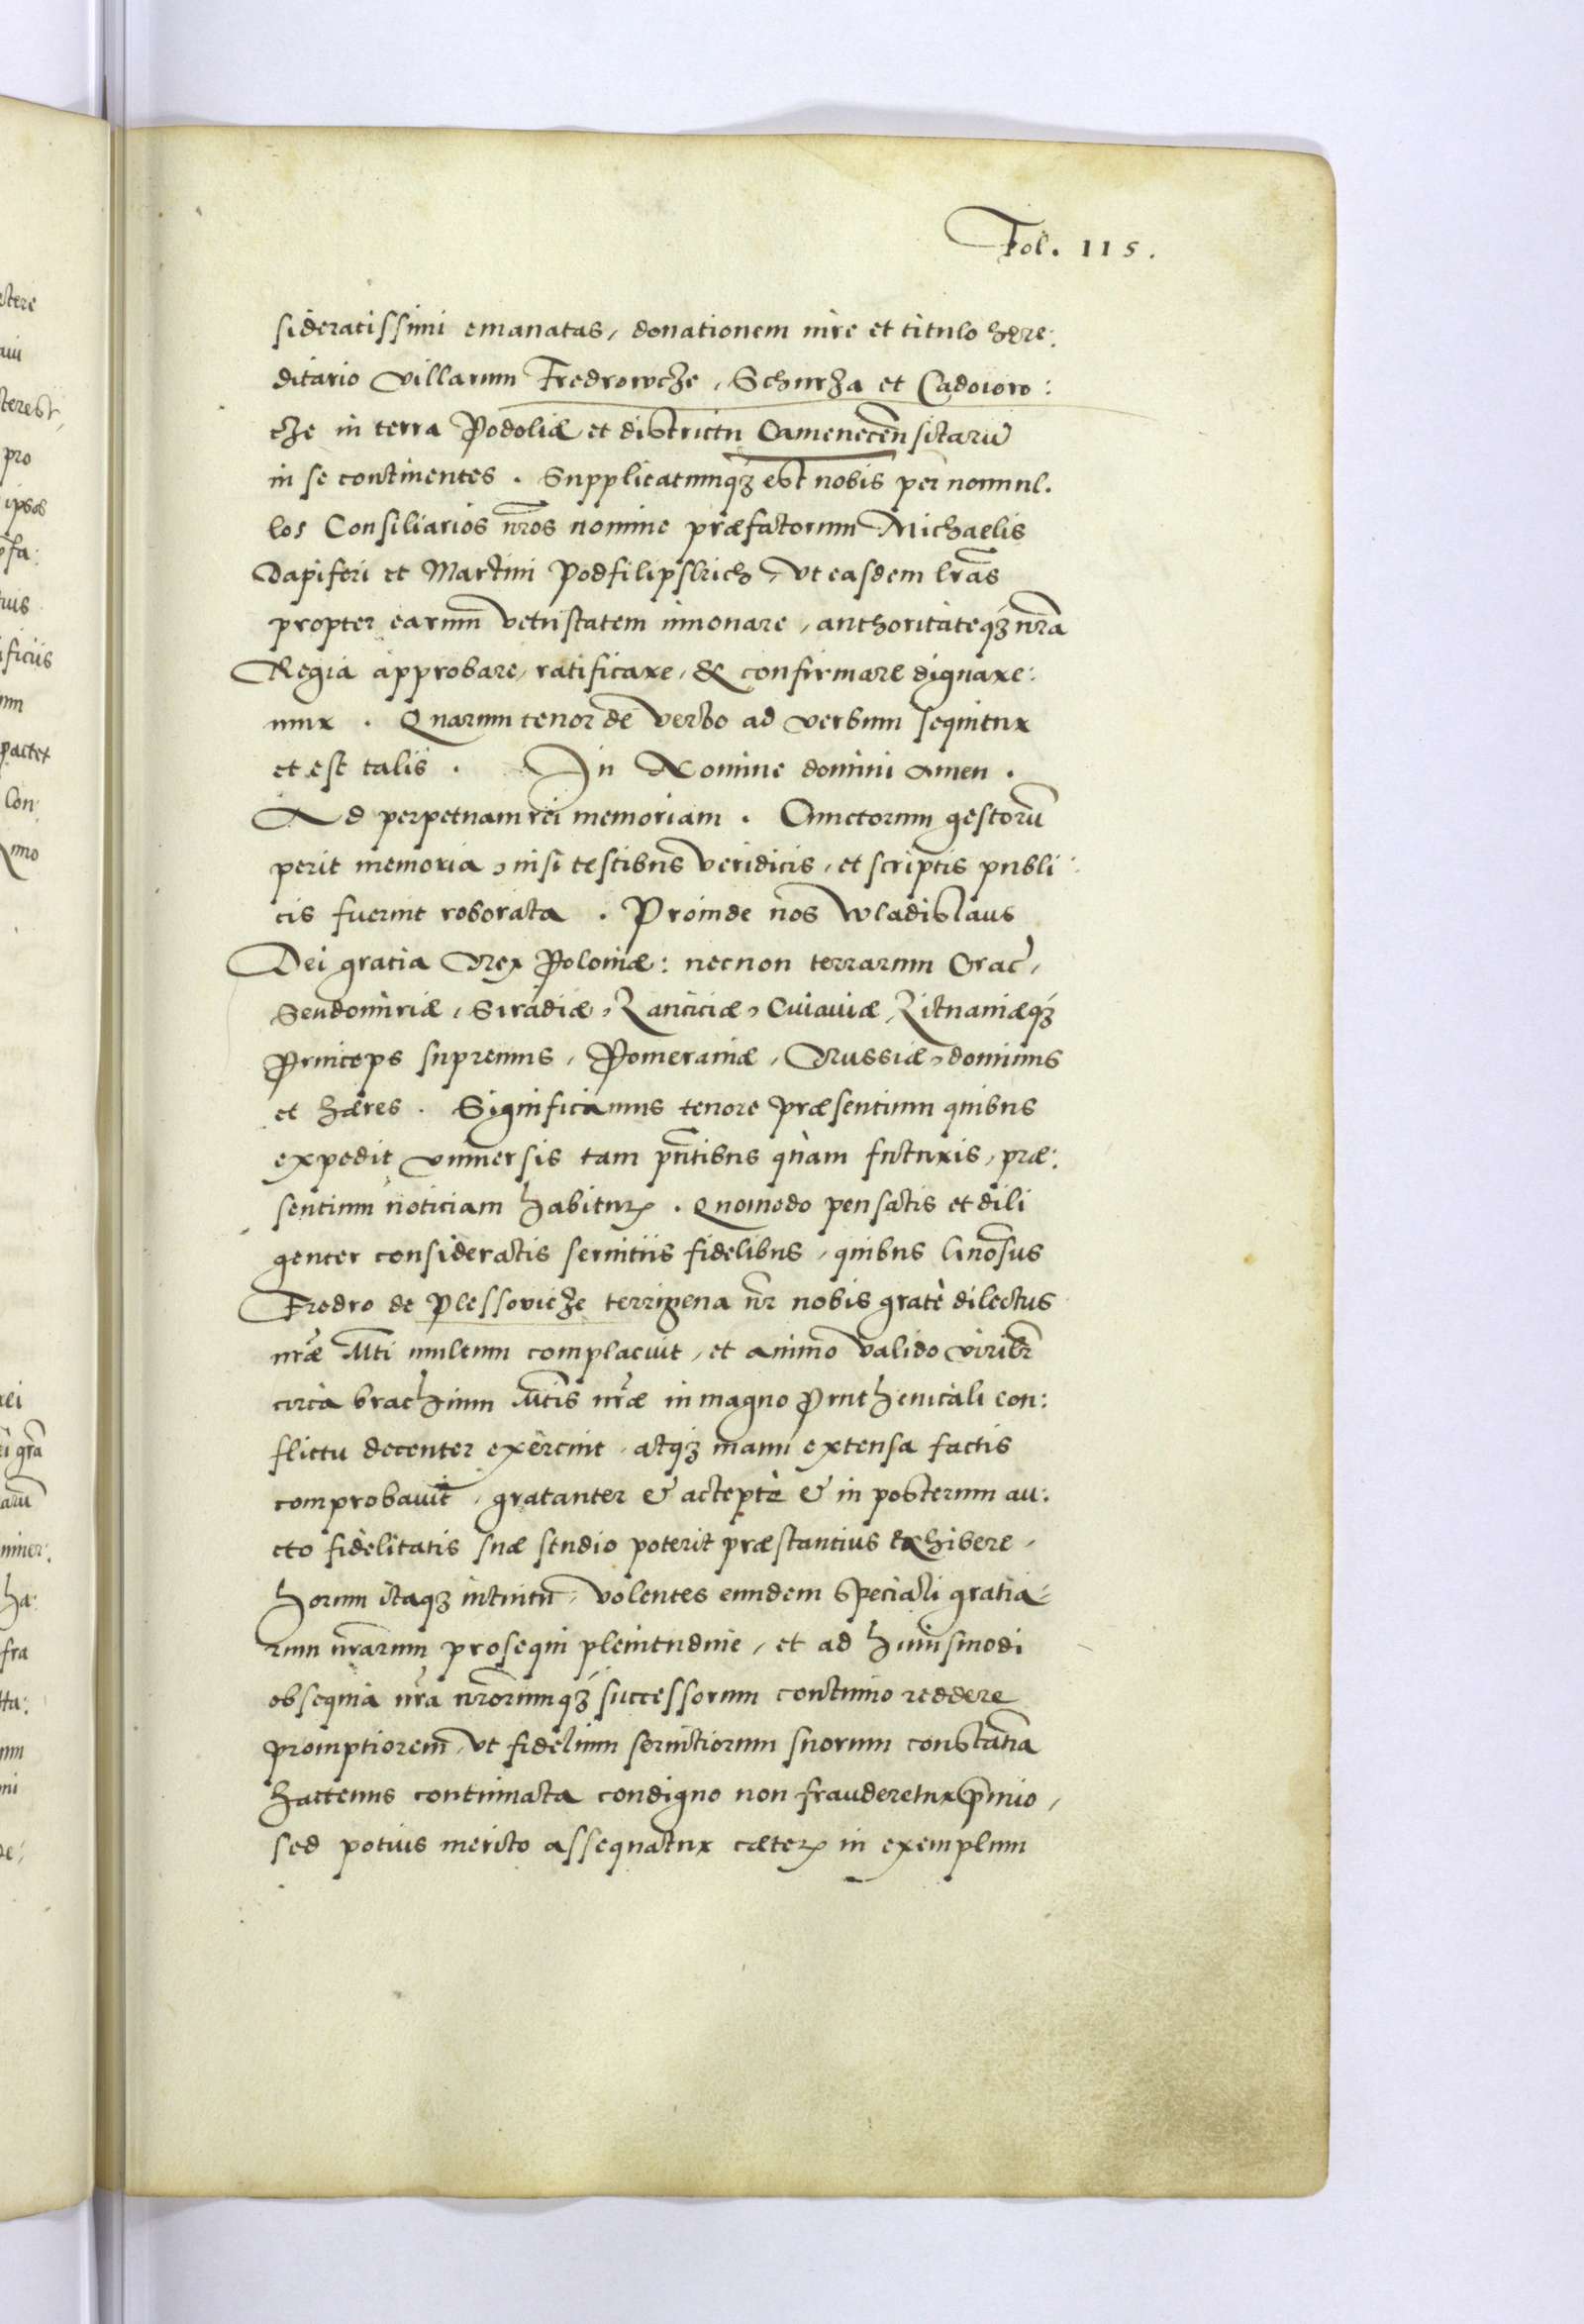 Fol. 115.
sideratissimi emanatas, donationem iure et titulo here:
ditario villarum Fredrowcze, Schurza et Cadoiow:
cze in terra Podoliæ et districtu Camenecen̄ sitarū
in se continentes. Supplicatumqʒ est nobis per nonnul.
los Consiliarios nr̄os nomine præfatorum Michaelis
Dapiferi et Martini Podfilipskich, vt easdem lr̄as
propter earum vetustatem innouare, authoritateqʒ nr̄a
Regia approbare, ratificare, & confirmare dignare:
mur. Quarum tenor de verbo ad verbum sequitur
et est talis. In Nomine domini Amen.
Ad perpetuam rei memoriam. Cunctorum gestorū
perit memoria, nisi testibus veridicis, et scriptis publi:
cis fuerint roborata. Proinde nos Wladislaus
Dei gratia Rex Poloniæ: necnon terrarum Crac̄,
Sendomiriæ, Siradiæ, Lanciciæ, Cuiauiæ, Lituaniæqʒ
Princeps supremus, Pomeraniæ, Russiæ, dominus
et hæres. Significamus tenore præsentium quibus
expedit vniuersis tam pn̄tibus quàm futuris, præ:
sentium noticiam habitur. Quomodo pensatis et dili
genter consideratis seruitiis fidelibus, quibus Gn̄osus
Fredro de Plessovicze terrigena nr̄ nobis gratè dilectus
nr̄æ Mti multum complacuit, et animo valido virib̄
circa brachium Mtis nr̄æ in magno Pruthenicali con:
flictu decenter exercuit, atqʒ manu extensa factis
comprobauit, gratanter & acceptè & in posterum au:
cto fidelitatis suæ studio poterit præstantius exhibere,
horum itaqʒ intuitu, volentes eundem speciali gratia:
rum nr̄arum prosequi plenitudine, et ad huiusmodi
obsequia nr̄a nr̄orumqʒ successorum continuo reddere
promptiorem, vt fidelium seruitiorum suorum constantia
hactenus continuata condigno non frauderetur p̄mio,
sed potius merito assequatur cæter in exemplum